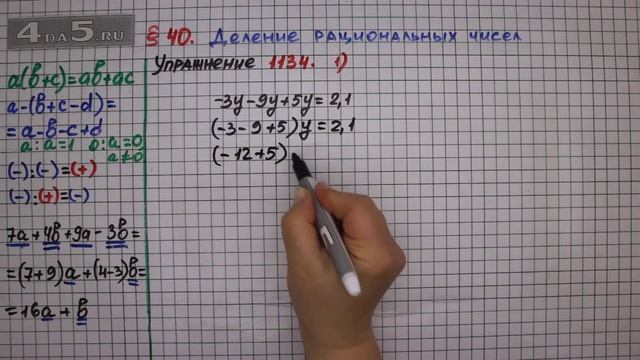 4DA5.RU
§ 40. Деление рациональных чисел
Упражнение 1134. 1)
a(b+c)=ab+ac
a-(b+c-d)=
=a-b-c+d
a:a=1 0:a=0
a≠0
(-):(-)=(+)
(-):(+)=(-)
7a+4b+9a-3b=
=(7+9)a+(4-3)b=
=16a+b
-3y-9y+5y=2,1
(-3-9+5)y=2,1
(-12+5)